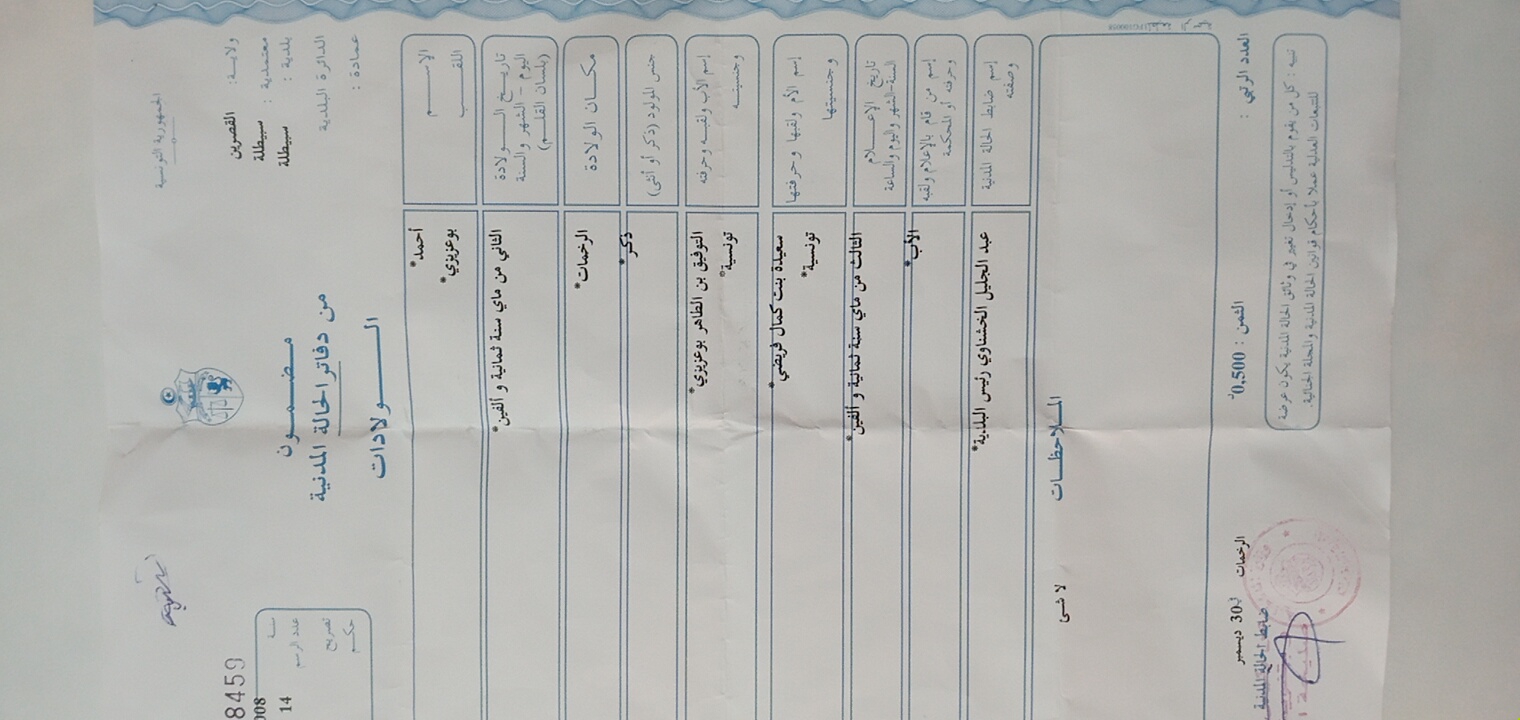 الجمهورية التونسية
ولاية: القصرين
معتمدية : سبيطلة
بلدية : سبيطلة
الدائرة البلدية
عمادة :
مضمون
من دفاتر الحالة المدنية
الولادات
8459
سنة 008
عدد الرسم 14
تصريح
حكم
الإسم
اللقب
أحمد*
بوعزيزي*
تاريخ الولادة
اليوم - الشهر والسنة
(بلسان القلم)
الثاني من ماي سنة ثمانية و ألفين*
مكان الولادة
الرخمات*
جنس المولود (ذكر أو أنثى)
ذكر*
إسم الأب ولقبه وحرفته
وجنسيته
التوفيق بن الطاهر بوعزيزي*
تونسية*
إسم الأم ولقبها وحرفتها
وجنسيتها
سعيدة بنت كمال فريضي*
تونسية*
تاريخ الإعلام
السنة-الشهر واليوم والساعة
الثالث من ماي سنة ثمانية و ألفين*
إسم من قام بالإعلام ولقبه
وحرفته أو المحكمة
الأب*
إسم ضابط الحالة المدنية
وصفته
عبد الجليل الخشناوي رئيس البلدية*
الملاحظات
لا شئ
العدد الرتبي :
الثمن : 0,500د
الرخمات في 30 ديسمبر
ضابط الحالة المدنية
تنبيه : كل من يقوم بالتدليس أو إدخال تغيير في وثائق الحالة المدنية يكون عرضة
للتتبعات العدلية عملا بأحكام قوانين الحالة المدنية والمجلة الجنائية.